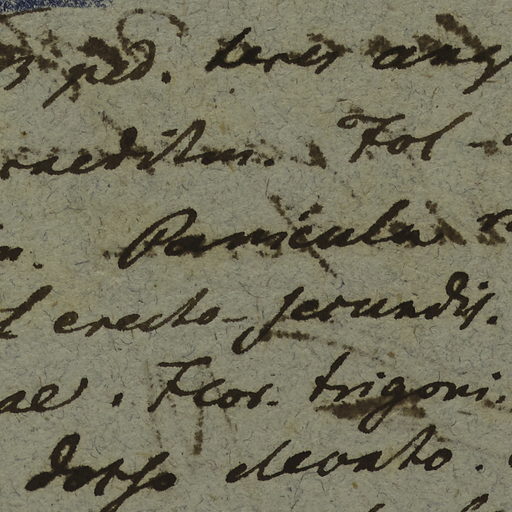 3 ped. teres ang
raeditus. Fol
Panicula
erecto-secundis.
ae. Flor. trigoni.
dorso elevato.